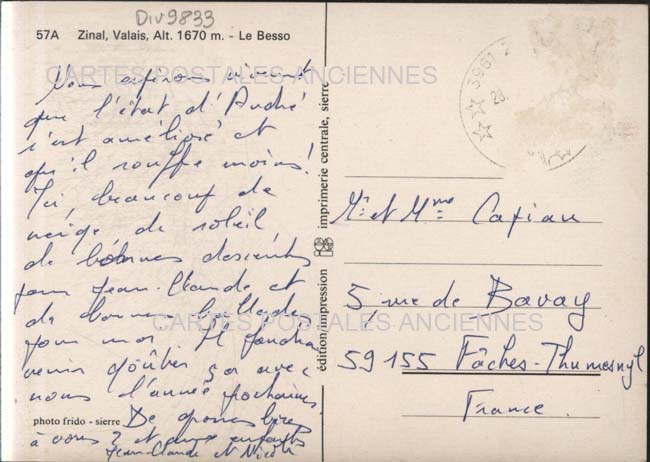 Div9833
57A Zinal, Valais, Alt. 1670 m. - Le Besso
CARTES POSTALES ANCIENNES
Nous espérons vivement
que l'état d'André
s'est amélioré et
qu'il souffre moins !
Ici, beaucoup de
neige, de soleil,
de bonnes descentes
pour Jean-Claude et
de bonnes ballades
pour moi. Il faudra
venir goûter ça avec
nous l'année prochaine
De grosses bises
à vous 2 et aux enfants
Jean-Claude et Nicole
photo frido - sierre
édition/impression
imprimerie centrale, sierre
3961
28.
Mr et Mme
5, rue de Bavay
59155 Fâches-Thumesnyl
France
CARTES POSTALES ANCIENNES